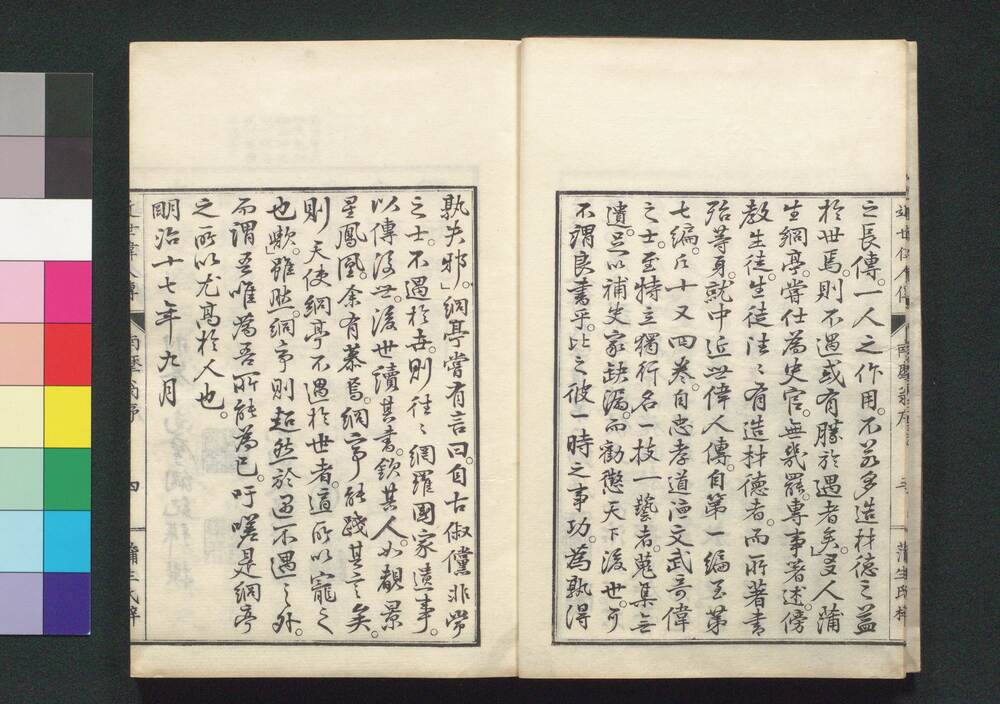 之長傳。一人之作用。不若多造材德之益
於世焉。則不遇或有勝於遇者矣。」友人蒲
生綱亭。嘗仕為史官。無幾罷。專事著述。傍
教生徒。生徒往々有造材德者。而所著書
殆等身。就中近世偉人傳。自第一編至第
七編。凡十又四卷。自忠孝道德文武奇偉
之士。至特立獨行名一技一藝者。蒐集無
遺。足以補史家缺漏。而勸懲天下後世。可
不謂良書乎。比之彼一時之事功。為孰得
孰失邪。」綱亭嘗有言曰。自古俶儻非常
之士。不遇於世。則往々網羅國家遺事。
以傳後世。後世讀其書。欽其人。如覩景
星鳳凰。余有慕焉。綱亭能踐其言矣。
則天使綱亭不遇於世者。適所以寵之
也歟。」雖然綱亭則超然於遇不遇之外。
而謂吾唯為吾所能為已。吁嗟是綱亭
之所以尤高於人也。
明治十七年九月
近世偉人傳
四
蒲生氏梓